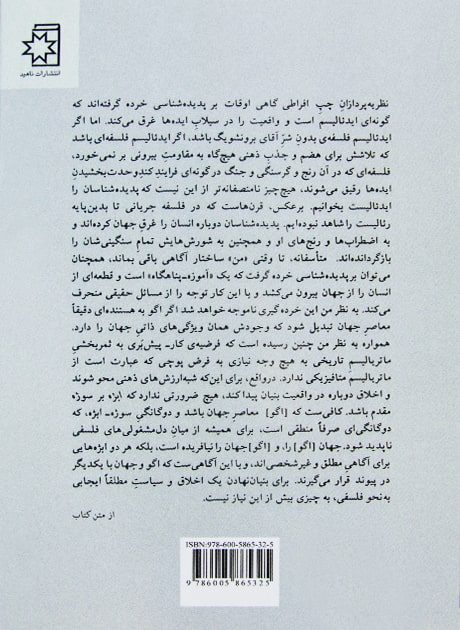 انتشارات ناهید
نظریه‌پردازانِ چپِ افراطی گاهی اوقات بر پدیده‌شناسی خرده گرفته‌اند که
گونه‌ای ایدئالیسم است و واقعیت را در سیلابِ ایده‌ها غرق می‌کند. اما اگر
ایدئالیسم فلسفه‌ی بدونِ شرّ آقای برونشویگ باشد، اگر ایدئالیسم فلسفه‌ای باشد
که تلاشش برای هضم و جذبِ ذهنی هیچ‌گاه به مقاومتِ بیرونی بر نمی‌خورد،
فلسفه‌ای که در آن رنج و گرسنگی و جنگ در گونه‌ای فرایندِ کندِ وحدت‌بخشیدنِ
ایده‌ها رقیق می‌شوند، هیچ‌چیز نامنصفانه‌تر از این نیست که پدیده‌شناسان را
ایدئالیست بخوانیم. برعکس، قرن‌هاست که در فلسفه جریانی تا بدین‌پایه
رئالیست را شاهد نبوده‌ایم. پدیده‌شناسان دوباره انسان را غرقِ جهان کرده‌اند و
به اضطراب‌ها و رنج‌های او و همچنین به شورش‌هایش تمامِ سنگینی‌شان را
بازگردانده‌اند. متأسفانه، تا وقتی «من» ساختارِ آگاهی باقی بماند، همچنان
می‌توان بر پدیده‌شناسی خرده گرفت که یک «آموزه‌ـپناهگاه» است و قطعه‌ای از
انسان را از جهان بیرون می‌کشد و با این کار توجه را از مسائل حقیقی منحرف
می‌کند. به نظر من این خرده‌گیری ناموجه خواهد شد اگر اگو به هستنده‌ای دقیقاً
معاصرِ جهان تبدیل شود که وجودش همان ویژگی‌های ذاتیِ جهان را دارد.
همواره به نظر من چنین رسیده است که فرضیه‌ی کارـ پیش‌بَری به ثمربخشیِ
ماتریالیسمِ تاریخی به هیچ وجه نیازی به فرضِ پوچی که عبارت است از
ماتریالیسمِ متافیزیکی ندارد. درواقع، برای این‌که شبه‌ارزش‌های ذهنی محو شوند
و اخلاق دوباره در واقعیت بنیان پیدا کند، هیچ ضرورتی ندارد که ابژه بر سوژه
مقدم باشد. کافی‌ست که [اگو] معاصرِ جهان باشد و دوگانگیِ سوژه‌ـ ابژه، که
دوگانگی‌ای صرفاً منطقی است، برای همیشه از میانِ دل‌مشغولی‌های فلسفی
ناپدید شود. جهان [اگو] را، و [اگو]جهان را نیافریده است، بلکه هر دو ابژه‌هایی
برای آگاهیِ مطلق و غیرشخصی‌اند، و با این آگاهی‌ست که اگو و جهان با یکدیگر
در پیوند قرار می‌گیرند. برای بنیان‌نهادن یک اخلاق و سیاستِ مطلقاً ایجابی
به‌نحو فلسفی، به چیزی بیش از این نیاز نیست.
از متن کتاب
ISBN:978-600-5865-32-5
9786005865325